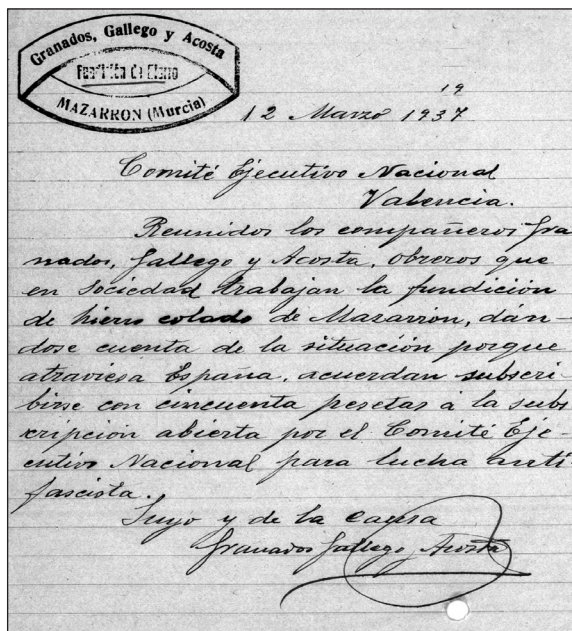 Granados, Gallego y Acosta
Fundición de Hierro
MAZARRON (Murcia)
19
12 Marzo 1937
Comité Ejecutivo Nacional
Valencia.
Reunidos los compañeros Gra
nados, Gallego y Acosta, obreros que
en Sociedad trabajan la fundición
de hierro colado de Mazarrón, dán-
dose cuenta de la situación porque
atraviesa España, acuerdan subscri-
birse con cincuenta pesetas á la subs
cripción abierta por el Comité Eje-
cutivo Nacional para lucha anti-
fascista.
Suyo y de la causa
Granados Gallego Acosta